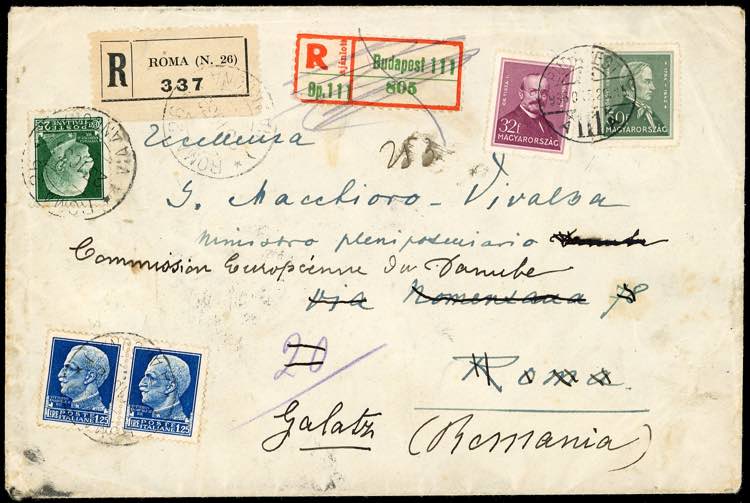 R
ROMA (N. 26)
337
R
Ajánlott
Budapest 111
Bp.111
805
32f
MAGYARORSZÁG
MAGYARORSZÁG
111
POSTE ITALIANE
Eccellenza
G. Macchioro-Vivalba
Ministro plenipotenziario Danube
Commission Européenne du Danube
Via Nomentana 78
20
Roma
Galatz (Romania)
POSTE ITALIANE
LIRE 1,25
POSTE ITALIANE
LIRE 1,25